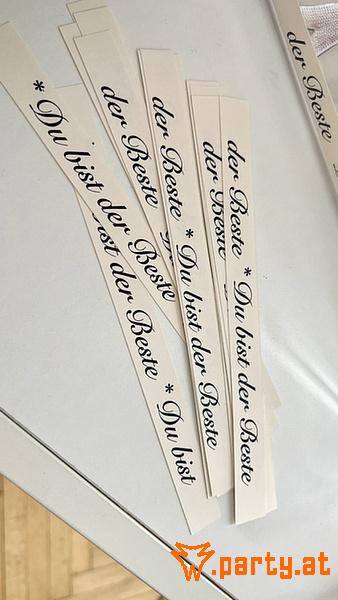 * Du bist der Beste
ist der Beste * Du bist
der Beste
der Beste * Du bist der Beste
der Beste
der Beste * Du bist der Beste
der Beste
w.party.at